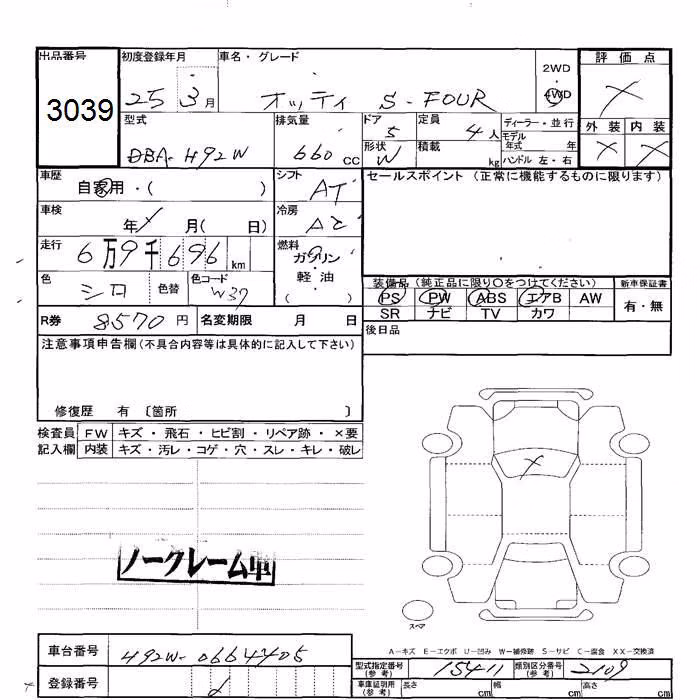 出品番号 初度登録年月 車名・グレード 2WD 評価点
3039 25 3月 オッティ S-FOUR 4WD ×
型式 排気量 ドア 定員 ディーラー・並行 外装 内装
DBA-H92W 660 CC 5 4人 モデル年式 年 × ×
形状 W 積載 kg ハンドル 左・右
車歴 自家用・( ) シフト AT セールスポイント(正常に機能するものに限ります)
車検 年 月( 日) 冷房 AC
走行 6万9千696 km 燃料 ガソリン
軽・油
( )
色 シロ 色替 色コード W37
装備品(純正品に限り〇をつけてください) 新車保証書
PS PW ABS エアB AW 有・無
SR ナビ TV カワ
R券 8570円 名変期限 月 日 後日品
注意事項申告欄(不具合内容等は具体的に記入して下さい)
修復歴 有 〔箇所 〕
検査員 FW キズ・飛石・ヒビ割・リペア跡・×要
記入欄 内装 キズ・汚レ・コゲ・穴・スレ・キレ・破レ
×
ノークレーム車
スペア
A-キズ E-エクボ U-凹み W-補修跡 S-サビ C-腐食 XX-交換済
車台番号 H92W-0664405 型式指定番号(参考) 15411 類別区分番号(参考) 2109
登録番号 車庫証明用(参考) 長さ cm 幅 cm 高さ cm